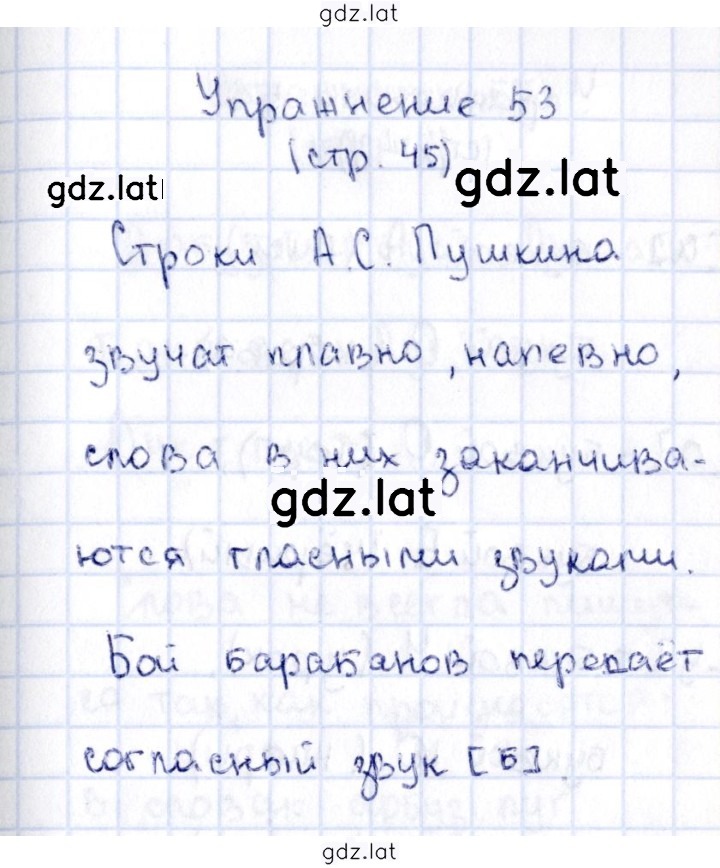 gdz.lat
Упражнение 53
(стр. 45)
gdz.lat
gdz.lat
Строки А.С. Пушкина
звучат плавно, напевно,
слова в них заканчива-
gdz.lat
ются гласными звуками.
Бой барабанов передаёт
согласный звук [б]
gdz.lat